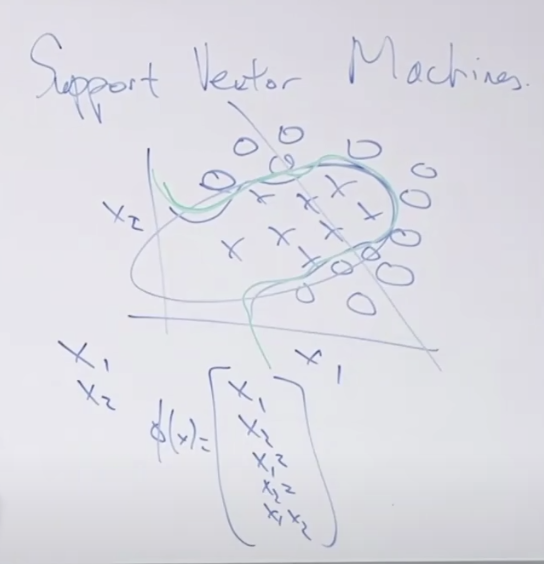 Support Vector Machines.
x₂
x₁
x₁
x₂
φ(x)=
x₁
x₂
x₁²
x₂²
x₁x₂